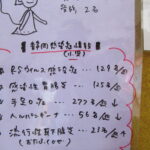 2名
静岡感染症情報
(小児)
RSウイルス感染症 … 129名
感染性胃腸炎 … 125名
手足口病 … 279名
ヘルパンギーナ … 56名
流行性耳下腺炎 … 21名
(おたふくかぜ)